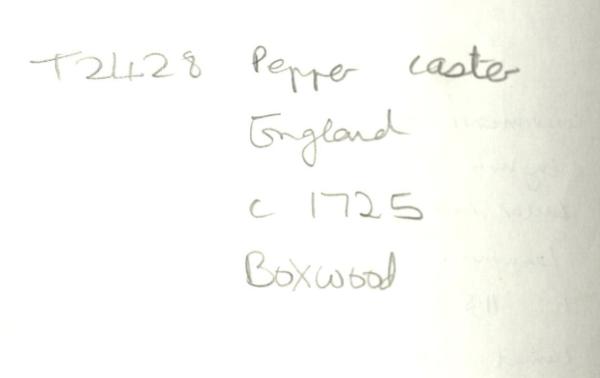 T2428 Pepper caster
England
c 1725
Boxwood